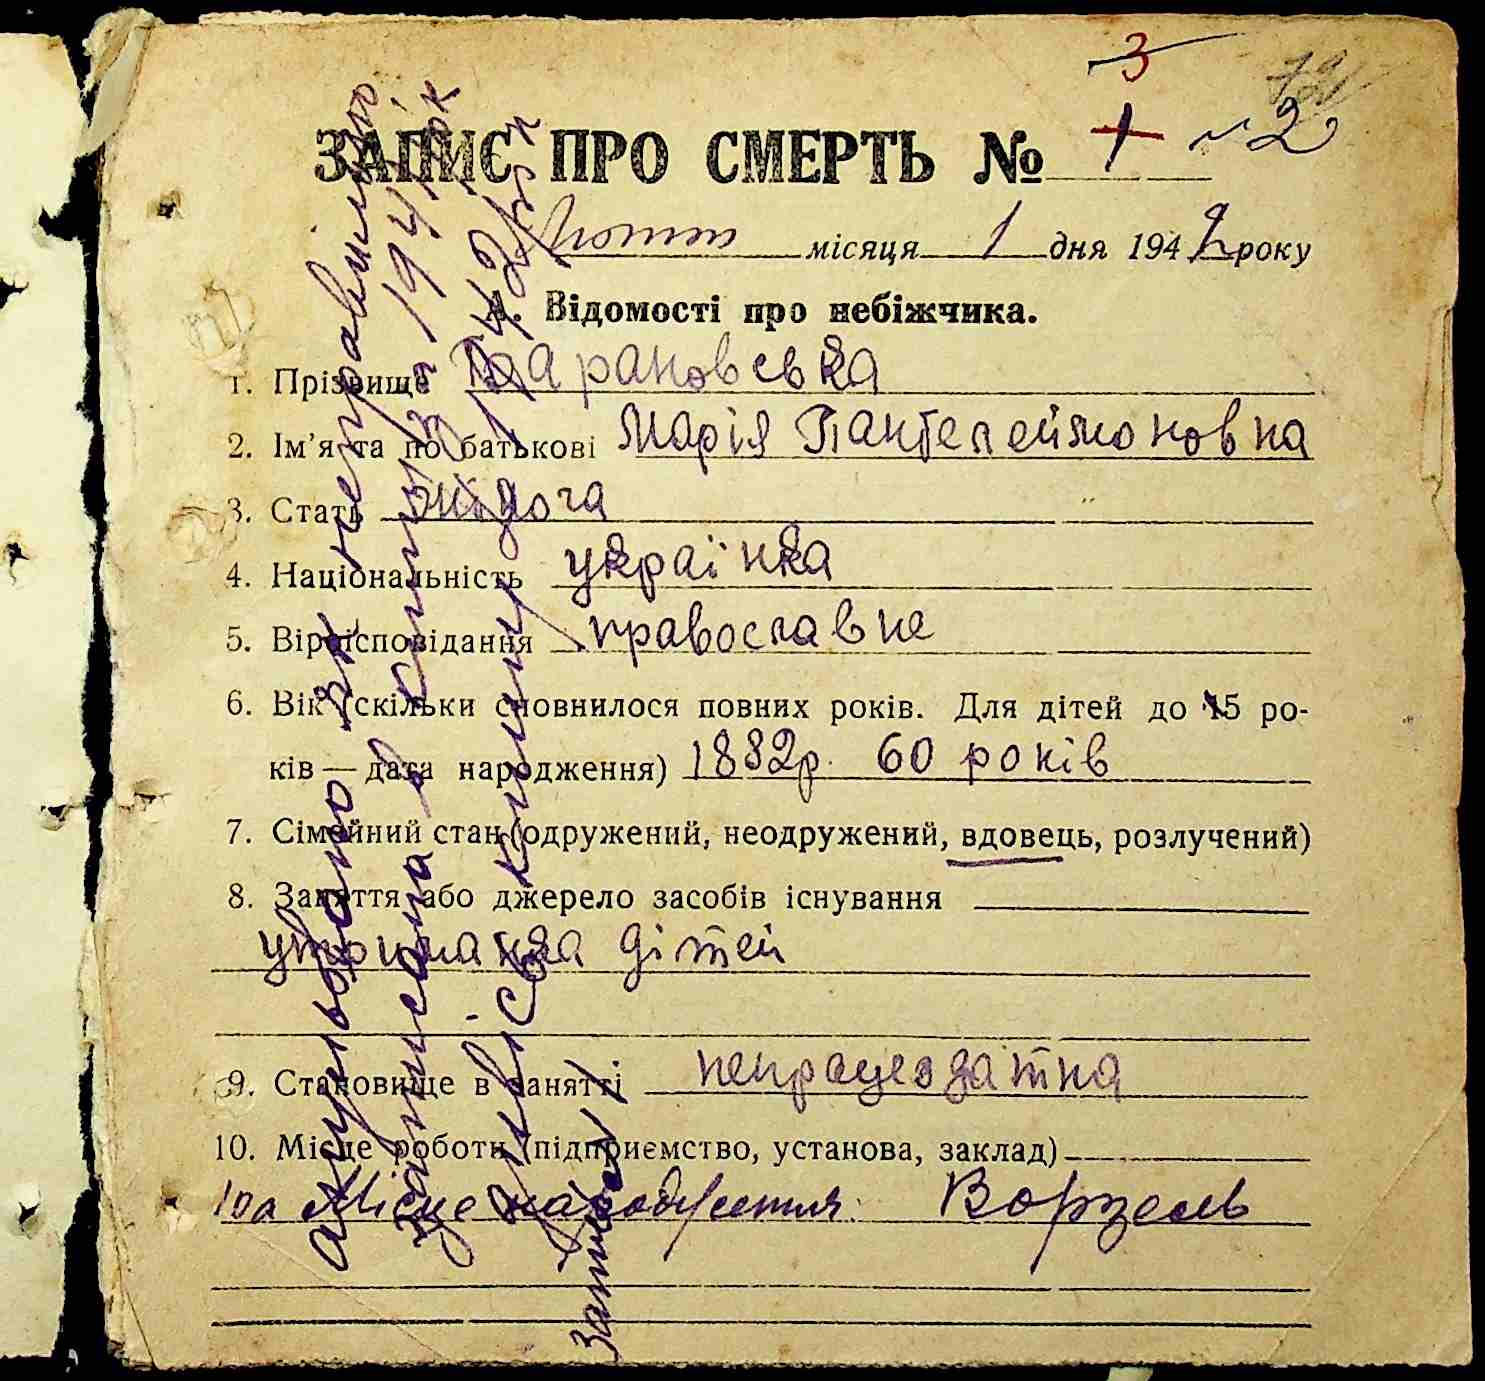 3
ЗАПИС ПРО СМЕРТЬ № 1 ~2
Лютого місяця 1 дня 1942 року
А. Відомості про небіжчика.
1. Прізвище Барановська
2. Ім'я та по батькові Марія Пантелеймоновна
3. Стать жіноча
4. Національність українка
5. Віроісповідання православне
6. Вік (скільки сповнилося повних років. Для дітей до 15 ро-
ків — дата народження) 1882р. 60 років
7. Сімейний стан (одружений, неодружений, вдовець, розлучений)
8. Заняття або джерело засобів існування
утриманка дітей
9. Становище в занятті непрацездатна
10. Місце роботи (підприємство, установа, заклад)
10а Місце народження. Ворзель
анульовано як неправильно
записана в за 1941 рік
книгу 1942 рік